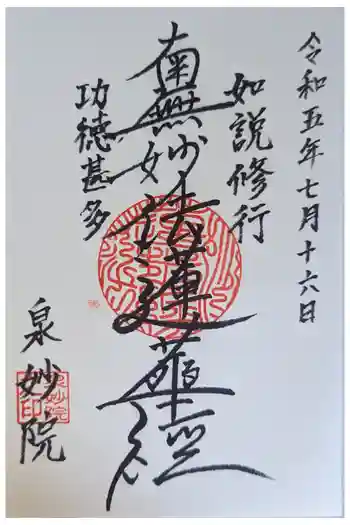 令和五年七月十六日
如説修行
南無妙法蓮華経
功徳甚多
泉妙院